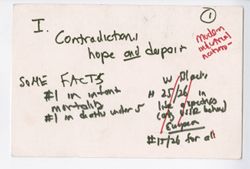 ①
I.
Contradictions,
hope and despair
Modern
industrial
nations
SOME FACTS
#1 in infant
mortality
#1 in deaths under 5
W Blacks
# 25/26 in
life expectancy
only USSR behind
European
#15/26 for all